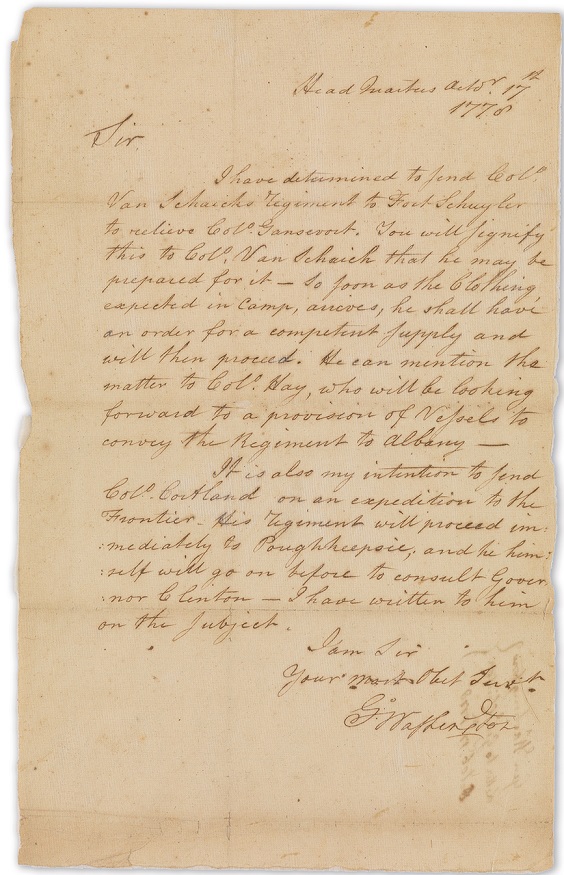 Head Quarters Octor. 17th
1778
Sir
I have determined to send Colo.
Van Schaicks Regiment to Fort Schuyler
to relieve Colo. Gansevort. You will signify
this to Colo. Van Schaick that he may be
prepared for it — So soon as the Clothing
expected in Camp, arrives, he shall have
an order for a competent supply and
will then proceed. He can mention the
matter to Colo. Hay, who will be looking
forward to a provision of Vessels to
convey the Regiment to Albany —
It is also my intention to send
Colo. Cortland on an expedition to the
Frontier. His Regiment will proceed im:
:mediately to Poughkeepsie; and he him:
:self will go on before to consult Gover
:nor Clinton — I have written to him
on the subject.
I am Sir
Your most Obet Servt.
Go Washington